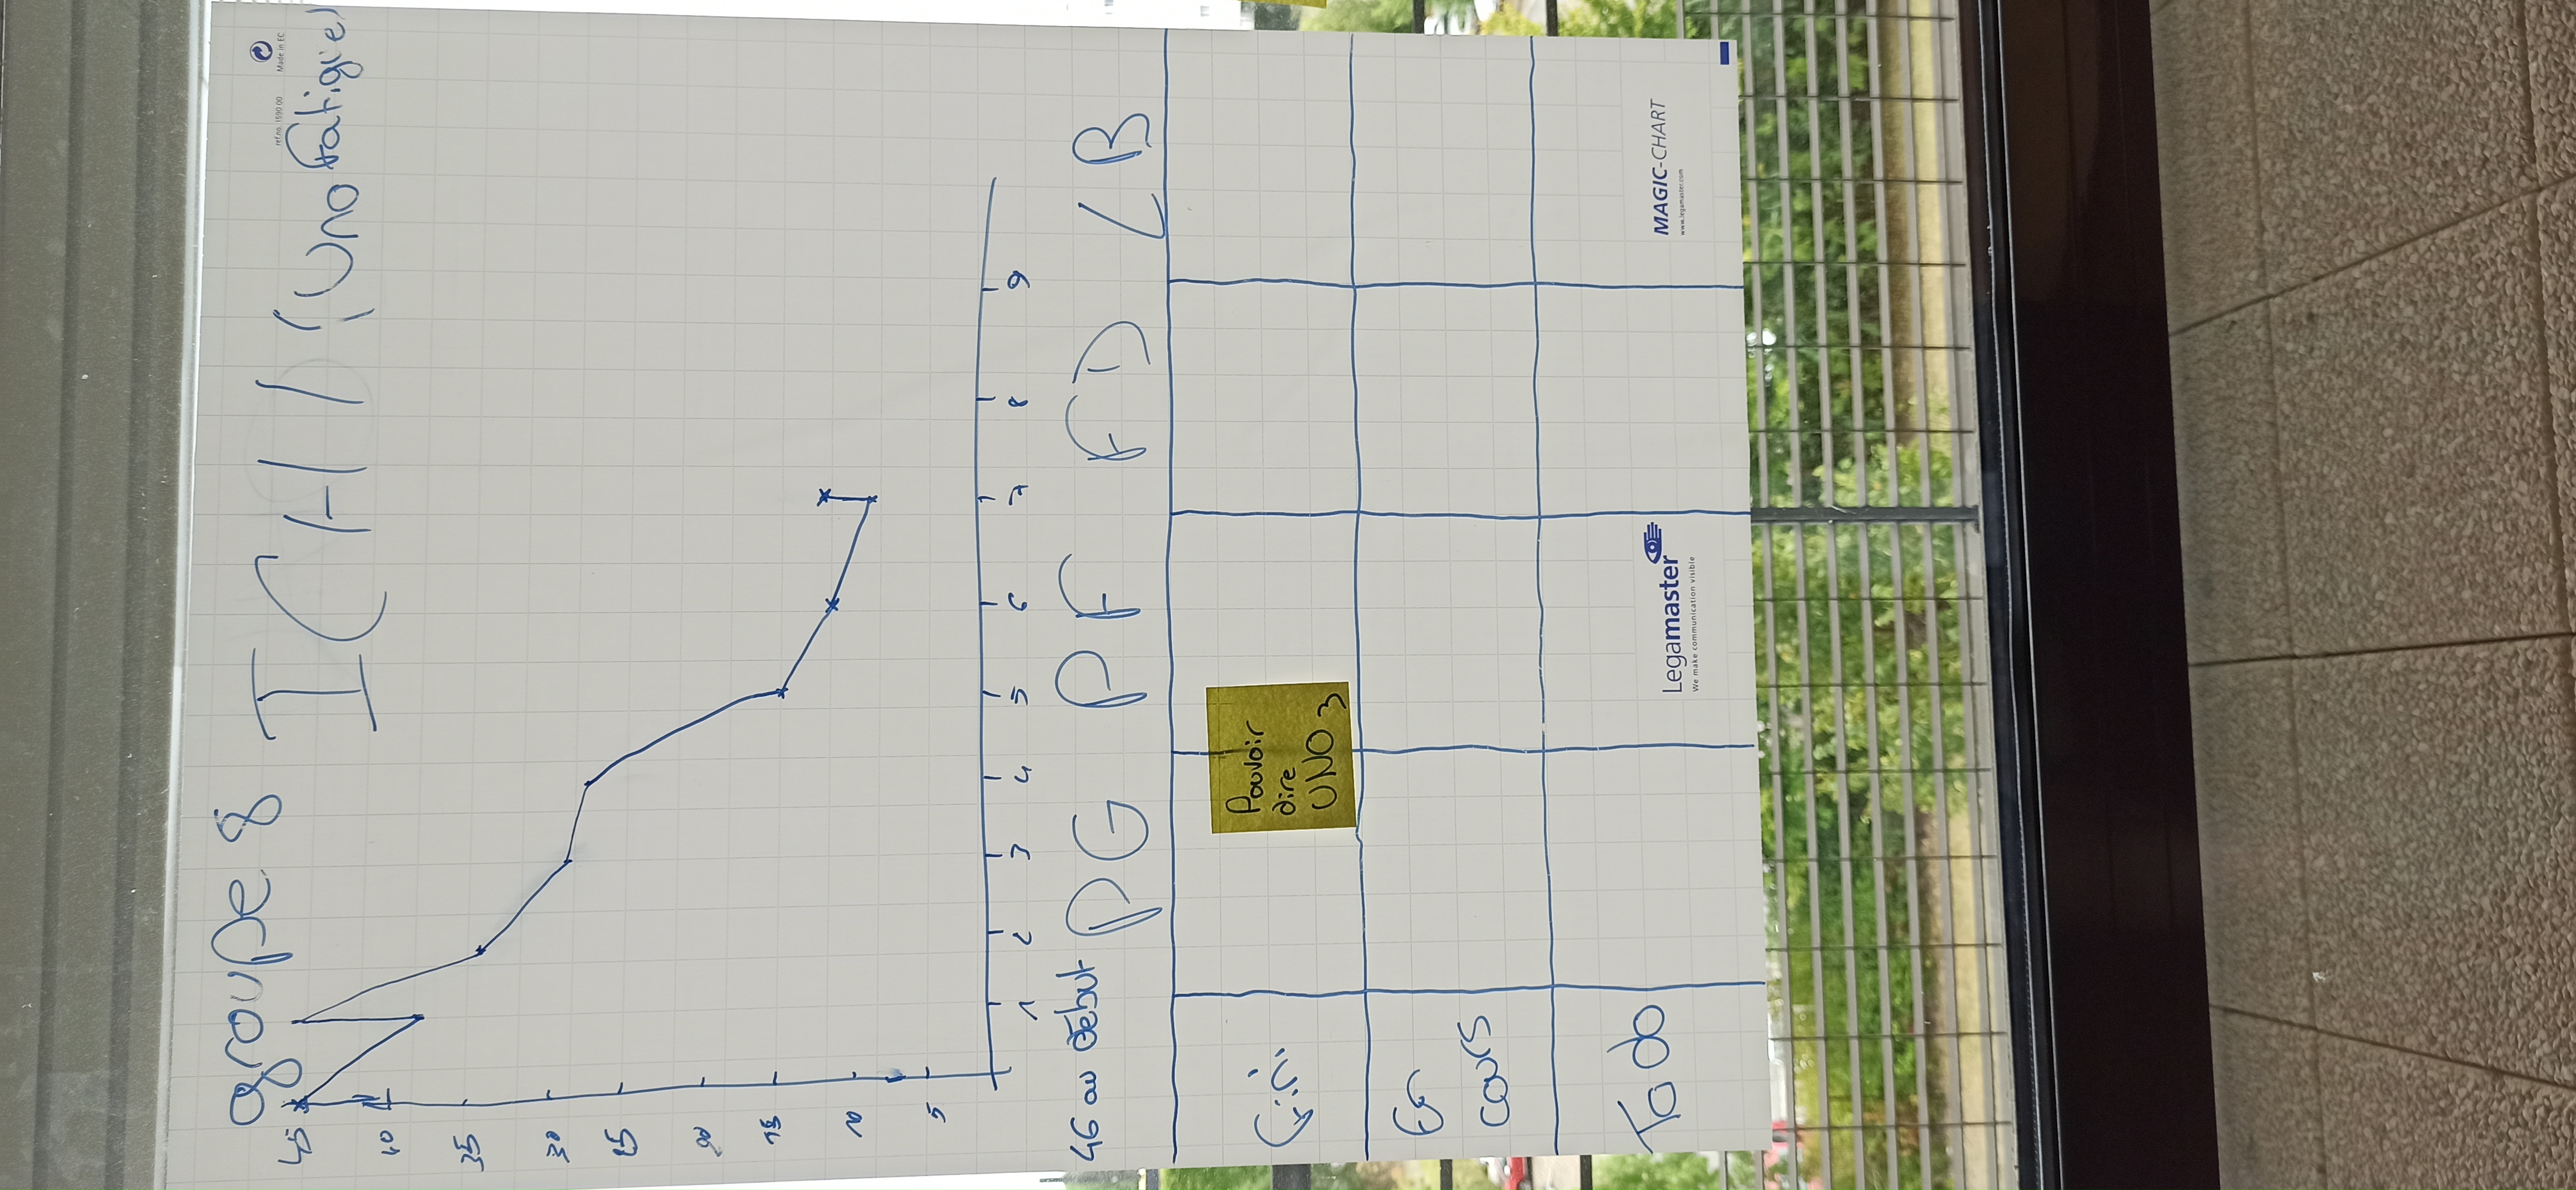 groupe 8
ICHI (Uno Fatigue)
ref.no. 1590 00
Made in EC
45
40
35
30
25
20
15
10
5
1 2 3 4 5 6 7 8 9
46 au début PG PF FD LB
Fini
Pouvoir
dire
UNO 3
En
cours
To do
Legamaster
We make communication visible
MAGIC-CHART
www.legamaster.com